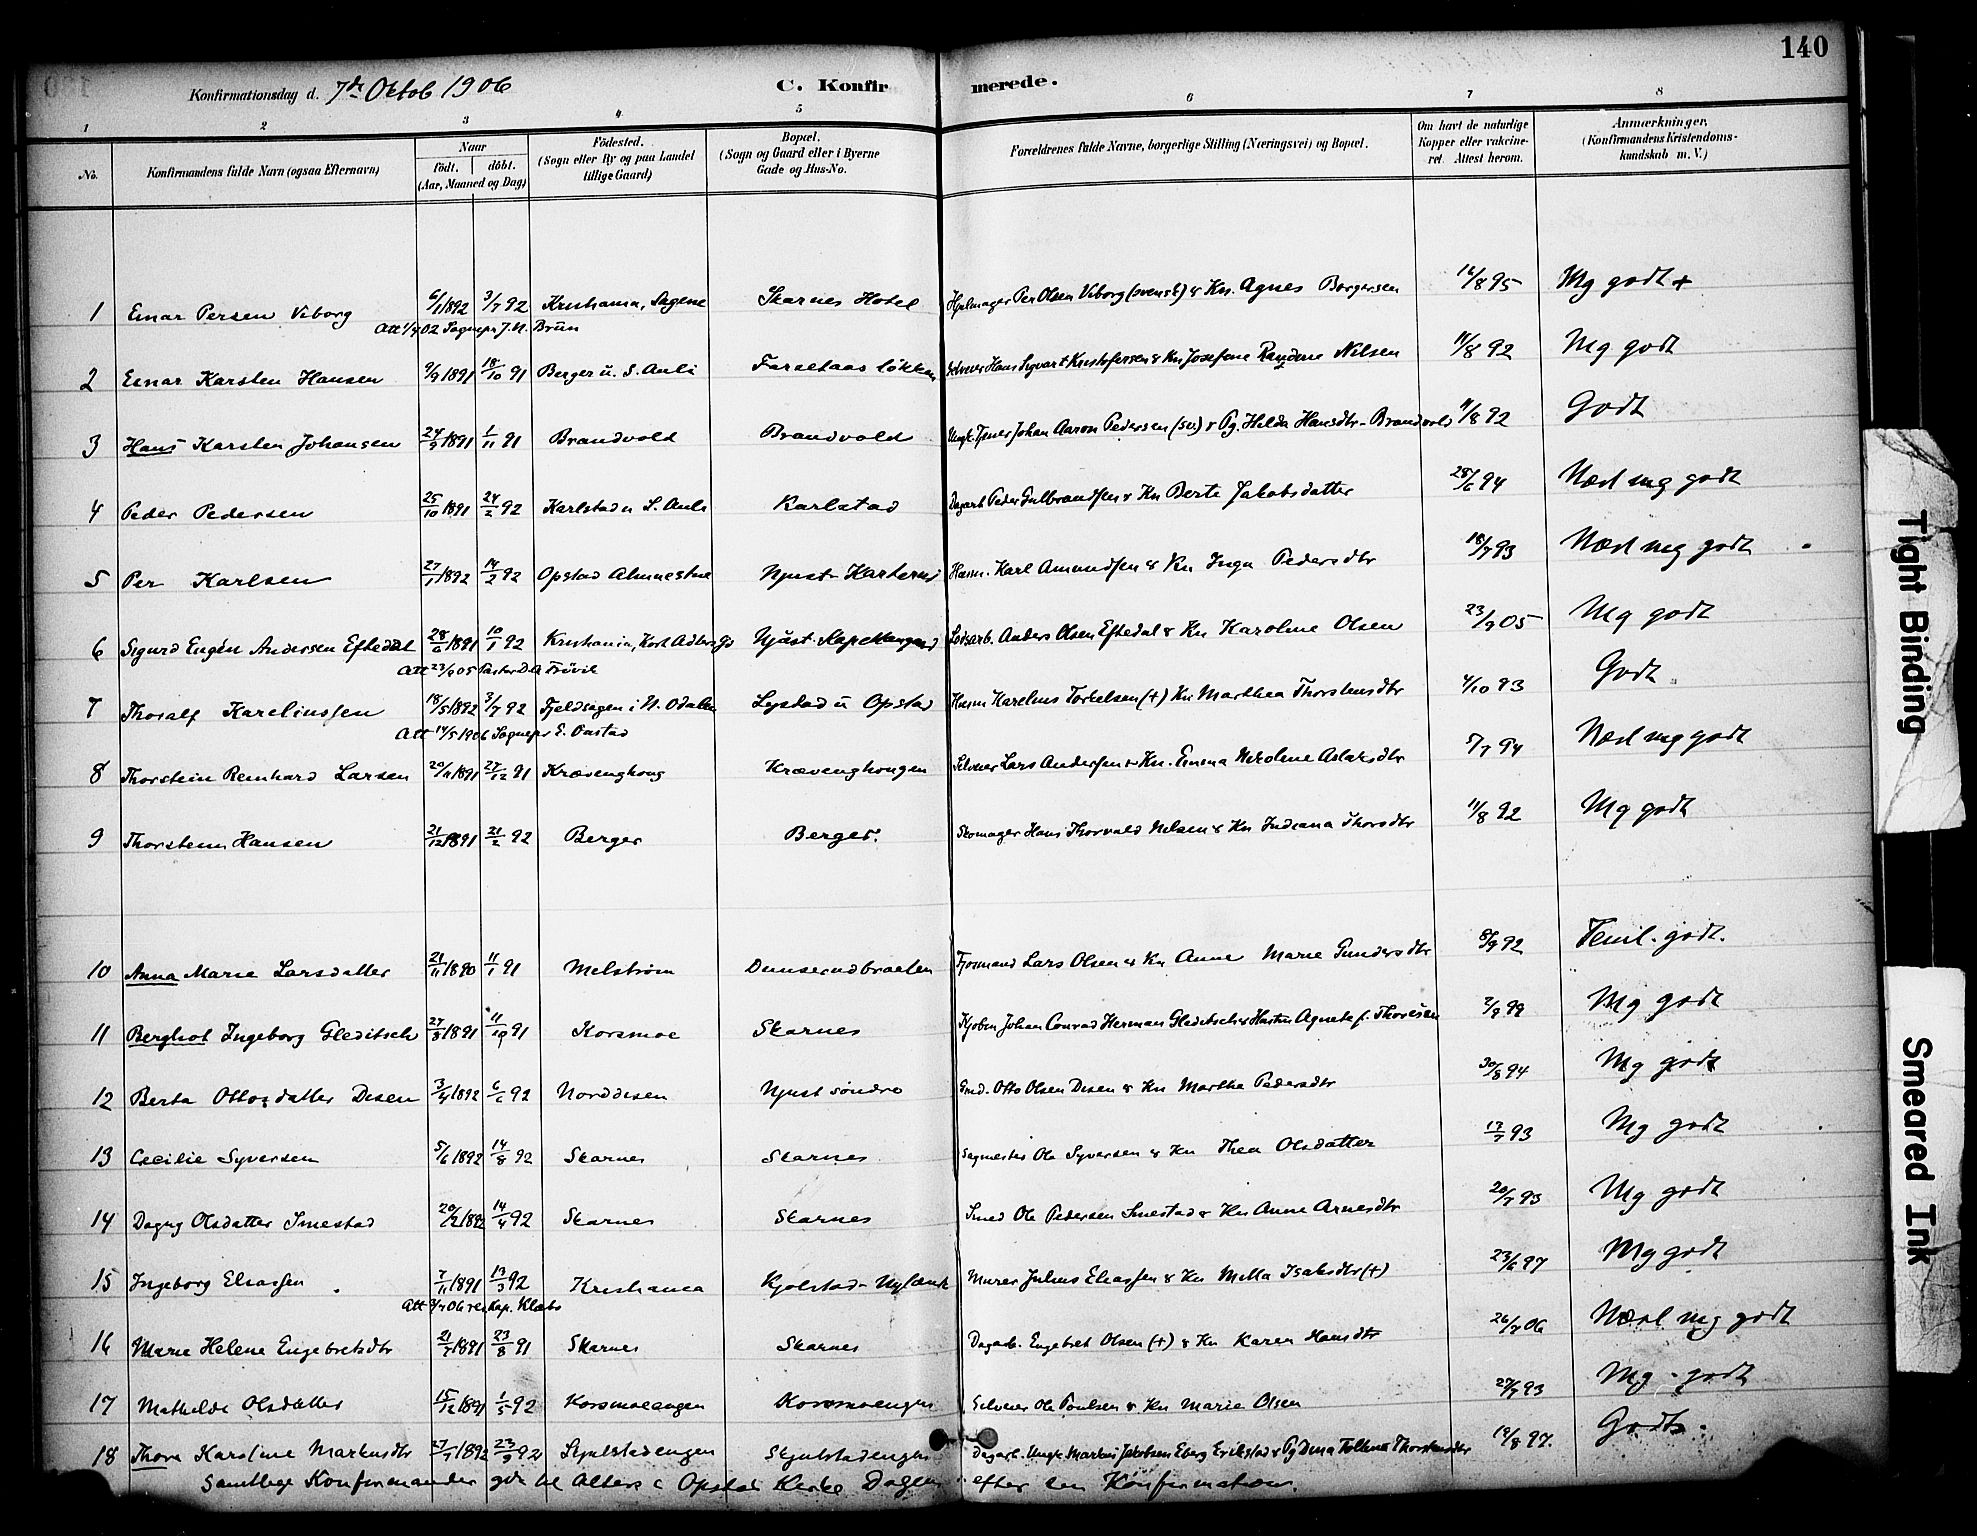 140
Konfirmationsdag d. 7de Oktob 1906 C. Konfirmerede.
1 2 3 4 5 6 7 8
No. Konfirmandens fulde Navn (ogsaa Efternavn) Naar født. døbt. (Aar, Maaned og Dag) Fødested. (Sogn eller By og paa Landet tillige Gaard) Bopæl. (Sogn og Gaard eller i Byerne Gade og Hus-No. Forældrenes fulde Navne, borgerlige Stilling (Næringsvei) og Bopæl. Om havt de naturlige Kopper eller vakcineret. Attest herom. Anmærkninger. (Konfirmandens Kristendomskundskab m. V.)
1 Einar Persen Viborg 6/1 1892 3/7 92 Kristiania, Sagene Skarnes Hotel Hjulmager Per Olsen Viborg (svensk) & Kn. Agnes Borgersen 16/8 95 Mg godt +
Att 1/9 02 Sognepr J. N. Brun
2 Einar Karsten Hansen 9/9 1891 18/10 91 Berger u. S. Auli Faraltaas løkken Selveier Hans Sigvart Kristofersen & Kn Josefine Randine Nilsen 11/8 92 Mg godt
3 Hans Karsten Johansen 24/9 1891 1/11 91 Brandvold Brandvold Ungk. Tjener Johan Aaron Pedersen (sv) & Pg. Hilda Hansdtr - Brandvold 11/8 92 Godt
4 Peder Pedersen 25/10 1891 24/2 92 Karlstad u S. Auli Karlstad Dagarb Peder Gulbrandsen & Kn Berte Jakobsdatter 28/6 94 Næst mg godt
5 Per Karlsen 27/1 1892 14/2 92 Opstad Njust- Husm. Karl Amundsen & Kn Inga Pedersdtr 18/7 93 Næst mg godt
6 Sigurd Eugén Andersen Eftedal 28/6 1891 10/1 92 Kristiania, Njust- Anders Olsen Eftedal & Kn Karoline Olsen 23/9 05 Mg godt
Att 23/9 05
7 Thoralf Karelinssen 18/5 1892 3/7 92 Fjeldsagen i N. Odalen Lystad u Opstad Husm Karelius Torkelsen (+) Kn Marthea Thorstensdtr 4/10 93 Godt
Att 14/5 1906 Sognepr E.
8 Thorstein Reinhard Larsen 20/11 1891 27/12 91 Krævenghoug Krævenghougen Selveier Lars Andersen & Kn. Emma Nikoline Aslaksdtr 5/7 94 Næst mg godt
9 Thorstein Hansen 21/12 1891 21/2 92 Berger Berger. Skomager Hans Thorvald Nilsen & Kn Indiana Thorsdtr 11/8 92 Mg godt
10 Anna Marie Larsdatter 21/11 1890 11/1 91 Melstrøm Dunserudbraaten Lars Olsen & Kn Anne Marie Gundersdtr 8/9 92 Temil. godt.
11 Berghot Ingeborg Gleditsch 27/8 1891 11/10 91 Korsmoe Skarnes Kjøbm Johan Conrad Herman Gleditsch & Hustru Agnete f. Thoresen 2/9 99 Mg godt
12 Berta Ottosdatter Disen 3/4 1892 6/6 92 Norddisen Njust søndre Gmd. Otto Olsen Disen & Kn Marthe Pedersdtr 30/8 94 Mg godt
13 Cecilie Syversen 5/6 1892 14/8 92 Skarnes Skarnes Sagmester Ole Syversen & Kn Thea Olsdatter 13/7 93 Mg godt
14 Dagny Olsdatter Smestad 20/2 1892 14/4 92 Skarnes Skarnes Smed Ole Pedersen Smestad & Kn Anne Arnesdtr 20/7 93 Mg godt
15 Ingeborg Eliassen 7/11 1891 13/3 92 Kristiania Kjølstad- Murer Julius Eliassen & Kn Mella Isaksdtr (+) 23/6 97 Mg godt
Att 06 res. Kap.
16 Marie Helene Engebretsdtr 21/7 1891 23/8 91 Skarnes Skarnes Dagarb. Engebret Olsen (+) & Kn Karen Hansdtr 26/7 06 Næst mg godt
17 Mathilde Olsdatter 15/12 1891 1/5 92 Korsmoengen Korsmoengen Selveier Ole Poulsen & Kn Marie Olsen 27/7 93 Mg - godt
18 Thora Karoline Markusdtr 27/7 1892 23/9 92 Skjulstadengen Skjulstadengen Dagarb. Ungk. Markus Jakobsen Eberg & Pg Dina Thorstensdtr 19/8 97. Godt.
Samtlige Konfirmander gik til Alters i Opstad Kirke Dagen efter sin Konfirmation.
Tight Binding
Smeared Ink